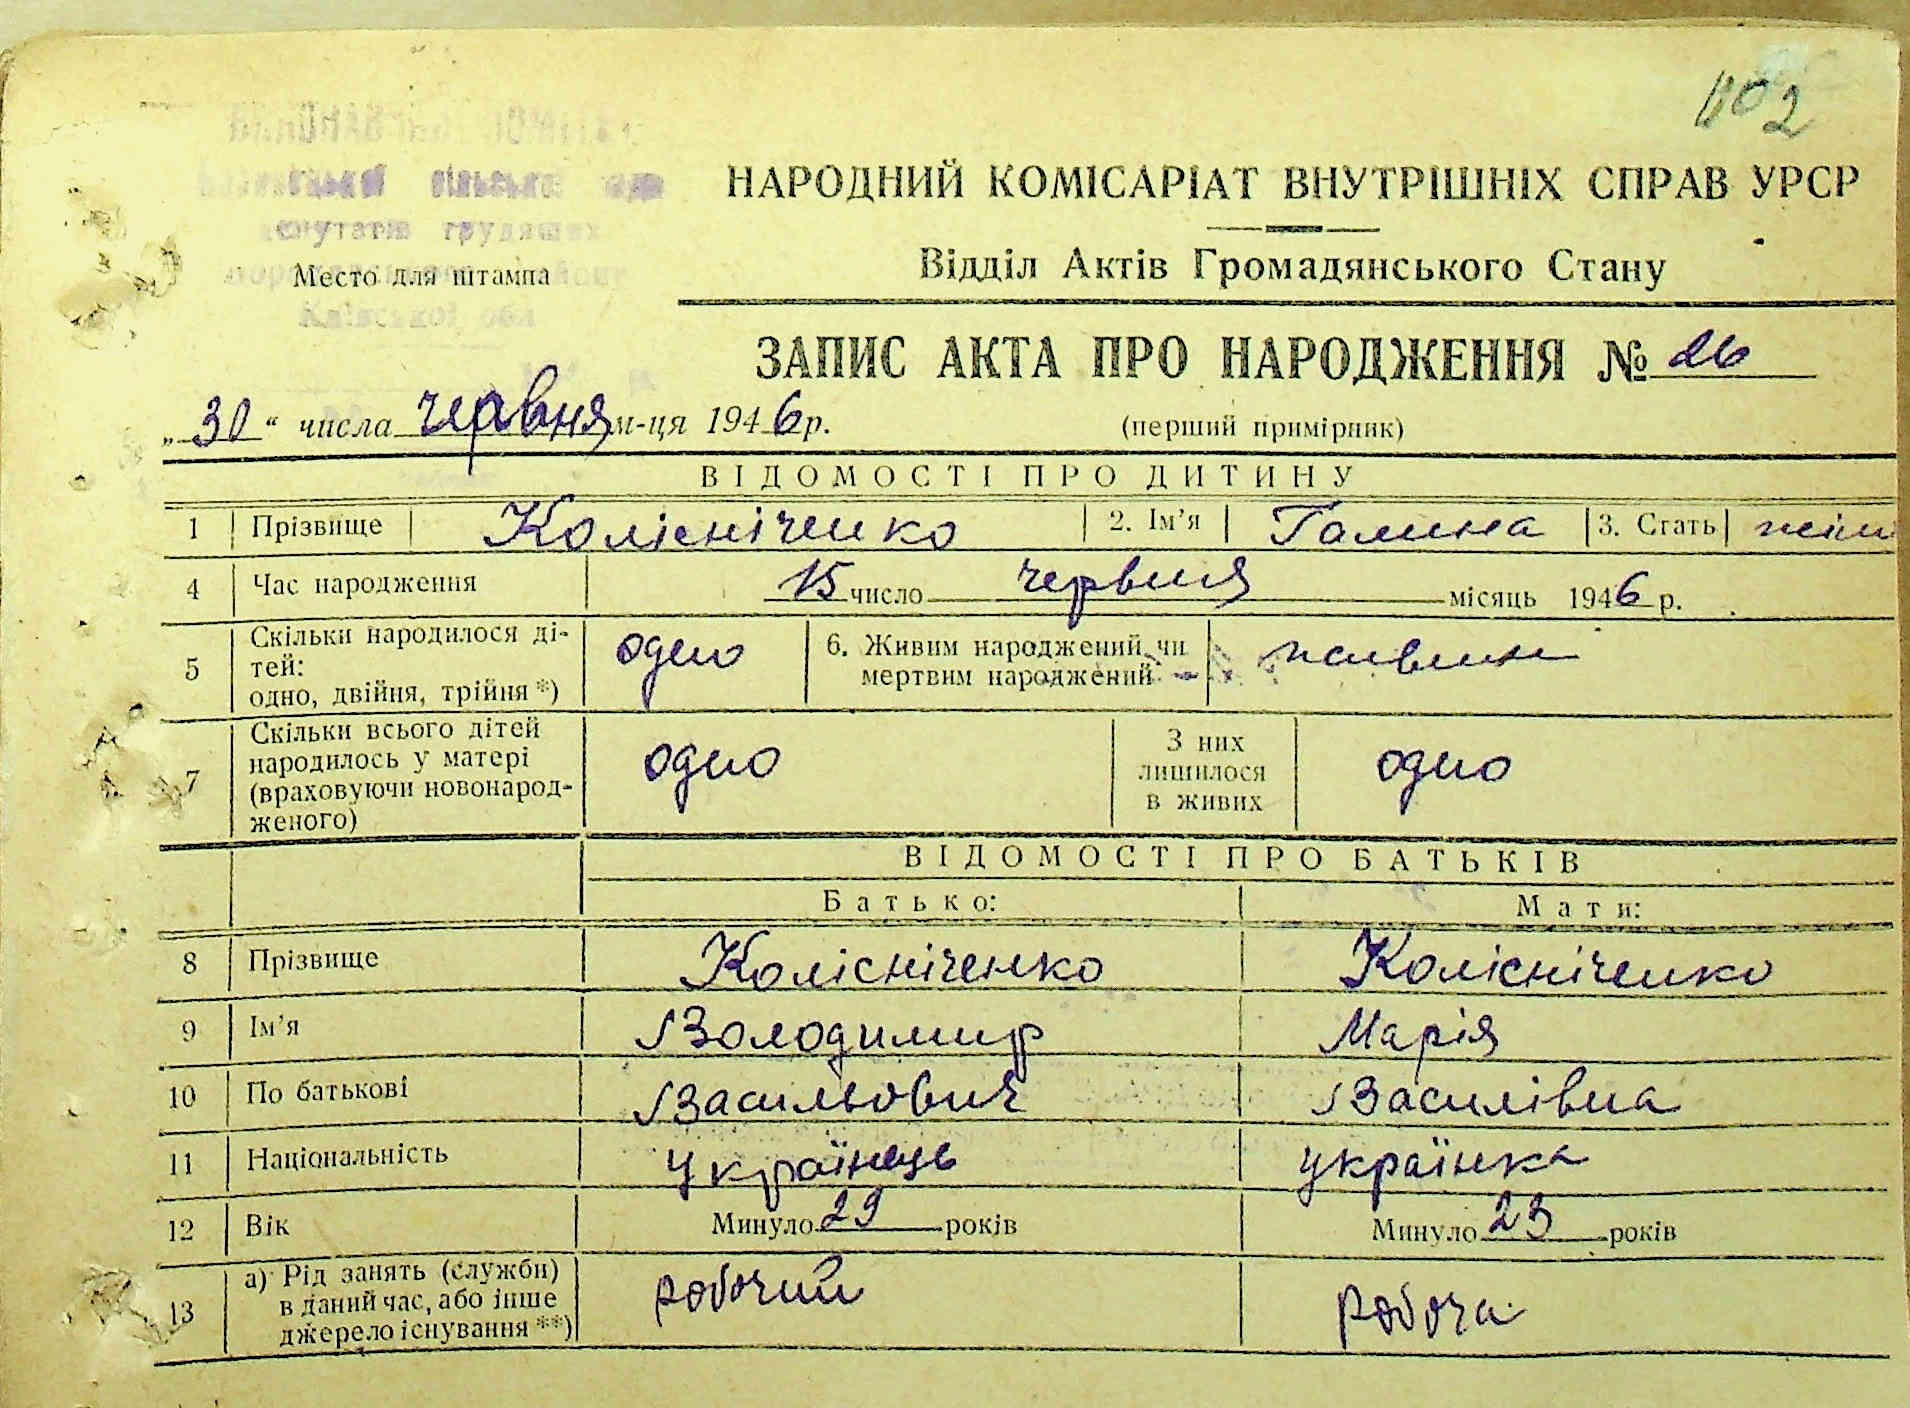 102
НАРОДНИЙ КОМІСАРІАТ ВНУТРІШНІХ СПРАВ УРСР
депутатів трудящих
Место для штампа
Київської обл
Відділ Актів Громадянського Стану
ЗАПИС АКТА ПРО НАРОДЖЕННЯ № 26
„30“ числа червня м-ця 1946р. (перший примірник)
ВІДОМОСТІ ПРО ДИТИНУ
1 Прізвище Колісніченко 2. Ім’я Галина 3. Стать жін
4 Час народження 15 число червня місяць 1946 р.
5 Скільки народилося ді-
тей:
одно, двійня, трійня *) одно 6. Живим народжений чи
мертвим народжений живим
7 Скільки всього дітей
народилось у матері
(враховуючи новонарод-
женого) одно З них
лишилося
в живих одно
ВІДОМОСТІ ПРО БАТЬКІВ
Батько: Мати:
8 Прізвище Колісніченко Колісніченко
9 Ім’я Володимир Марія
10 По батькові Васильович Василівна
11 Національність українець українка
12 Вік Минуло 29 років Минуло 23 років
13 а) Рід занять (служби)
в даний час, або інше
джерело існування **) робочий робоча